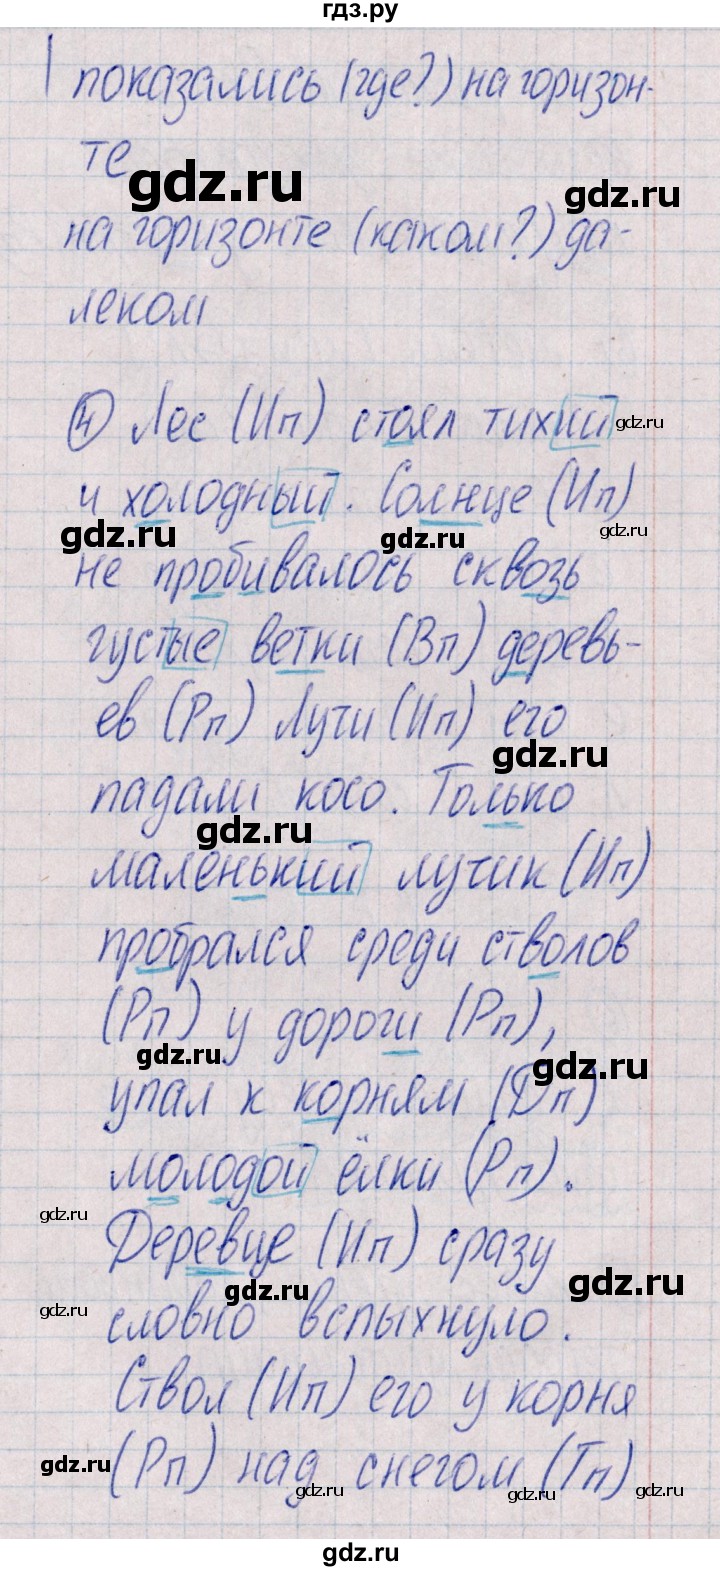 гдз.ру
показались (где?) на горизон-
те
gdz.ru
gdz.ru
на горизонте (каком?) да-
леком
④ Лес (Ип) стоял тихий
gdz.ru
и холодный. Солнце (Ип)
gdz.ru
gdz.ru
gdz.ru
не пробивалось сквозь
густые ветки (Вп) деревь-
ев (Рп) Лучи (Ип) его
gdz.ru
падали косо. Только
gdz.ru
маленький лучик (Ип)
пробрался среди стволов
(Рп) у дороги (Рп),
gdz.ru
gdz.ru
упал к корням (Дп)
молодой ёлки (Рп).
gdz.ru
Деревце (Ип) сразу
gdz.ru
gdz.ru
gdz.ru
словно вспыхнуло.
Ствол (Ип) его у корня
gdz.ru
(Рп) над снегом (Тп)
gdz.ru
gdz.ru
gdz.ru
gdz.ru